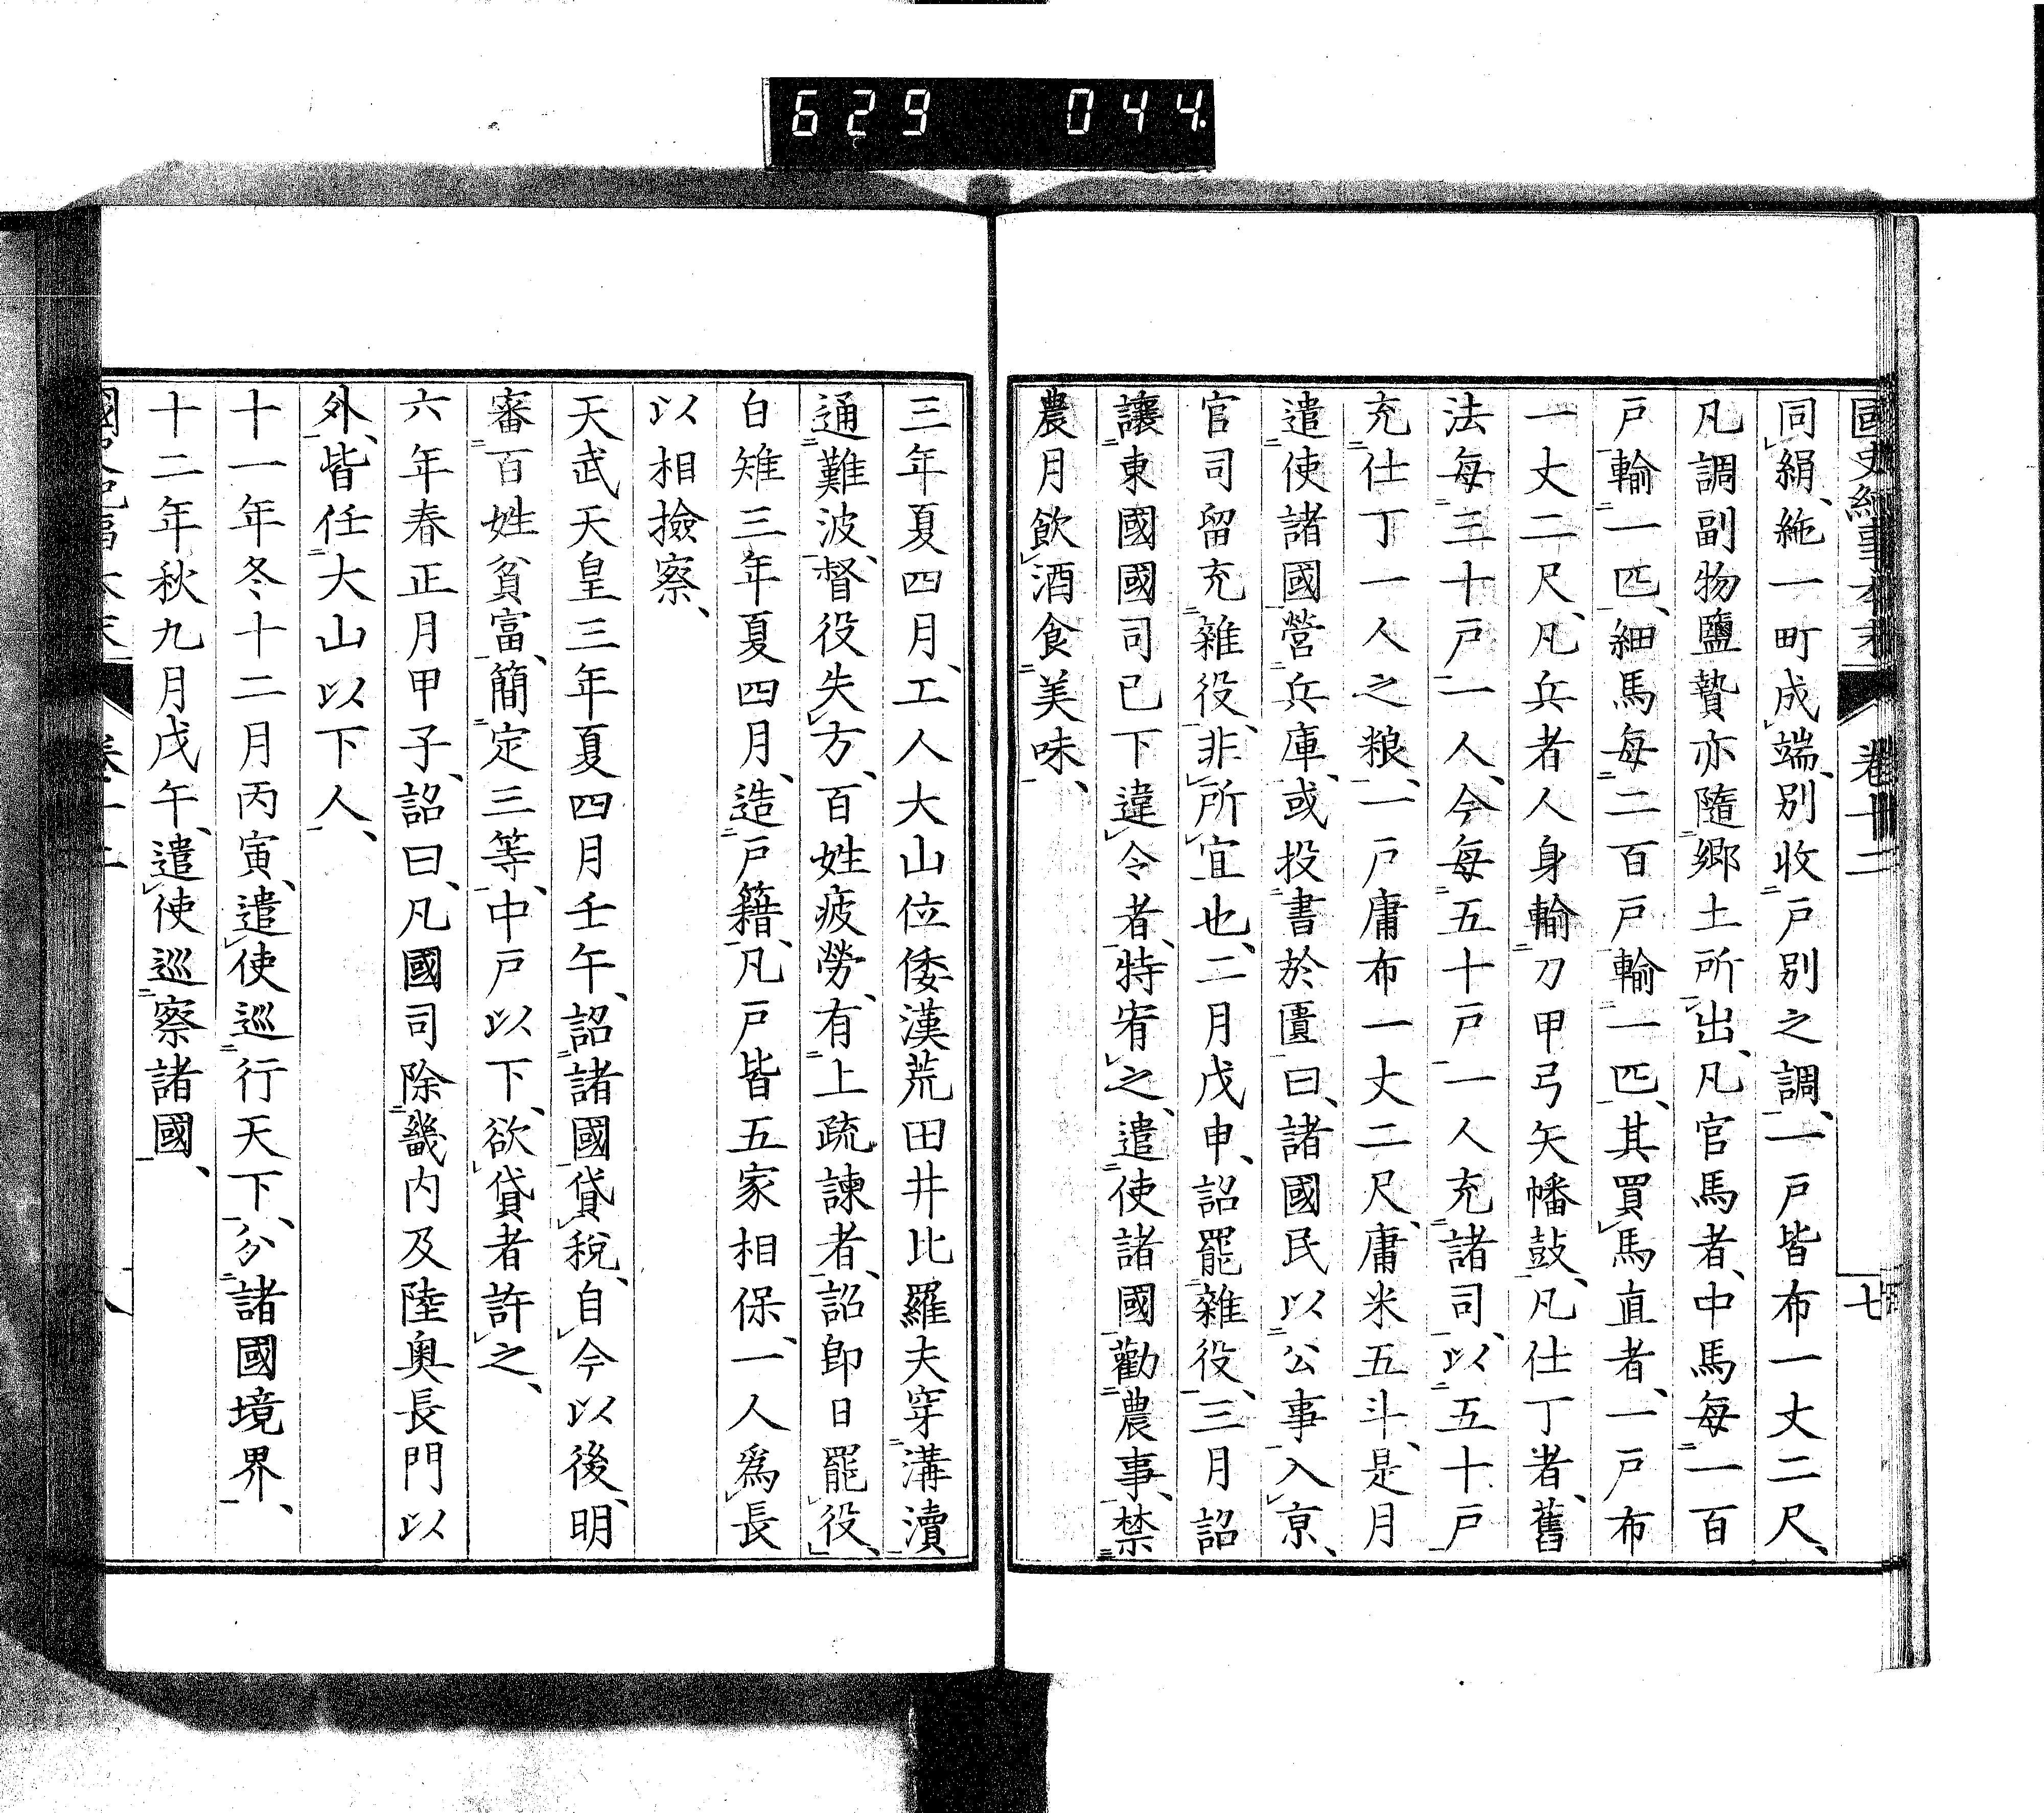 629 044
國史紀事本末 卷十二 七
同絹、絁一町成端、別收戸別之調、一戸皆布一丈二尺、
凡調副物鹽贄亦隨郷土所出、凡官馬者、中馬每一百
戸輸一匹、細馬每二百戸輸一匹、其買馬直者、一戸布
一丈二尺、凡兵者人身輸刀甲弓矢幡鼓、凡仕丁者、舊
法每三十戸一人、今每五十戸一人充諸司、以五十戸
充仕丁一人之粮、一戸庸布一丈二尺、庸米五斗、是月
遣使諸國營兵庫、或投書於匱曰、諸國民以公事入京、
官司留充雜役、非所宜也、二月戊申、詔罷雜役、三月詔
讓東國國司已下違令者、特宥之、遣使諸國勸農事、禁
農月飲酒食美味、
三年夏四月、工人大山位倭漢荒田井比羅夫穿溝瀆
通難波、督役失方、百姓疲勞、有上疏諫者、詔即日罷役、
白雉三年夏四月、造戸籍、凡戸皆五家相保、一人爲長
以相撿察、
天武天皇三年夏四月壬午、詔諸國貸稅、自今以後、明
審百姓貧富、簡定三等、中戸以下、欲貸者許之、
六年春正月甲子、詔曰、凡國司除畿內及陸奥長門以
外、皆任大山以下人、
十一年冬十二月丙寅、遣使巡行天下、分諸國境界、
十二年秋九月戊午、遣使巡察諸國、